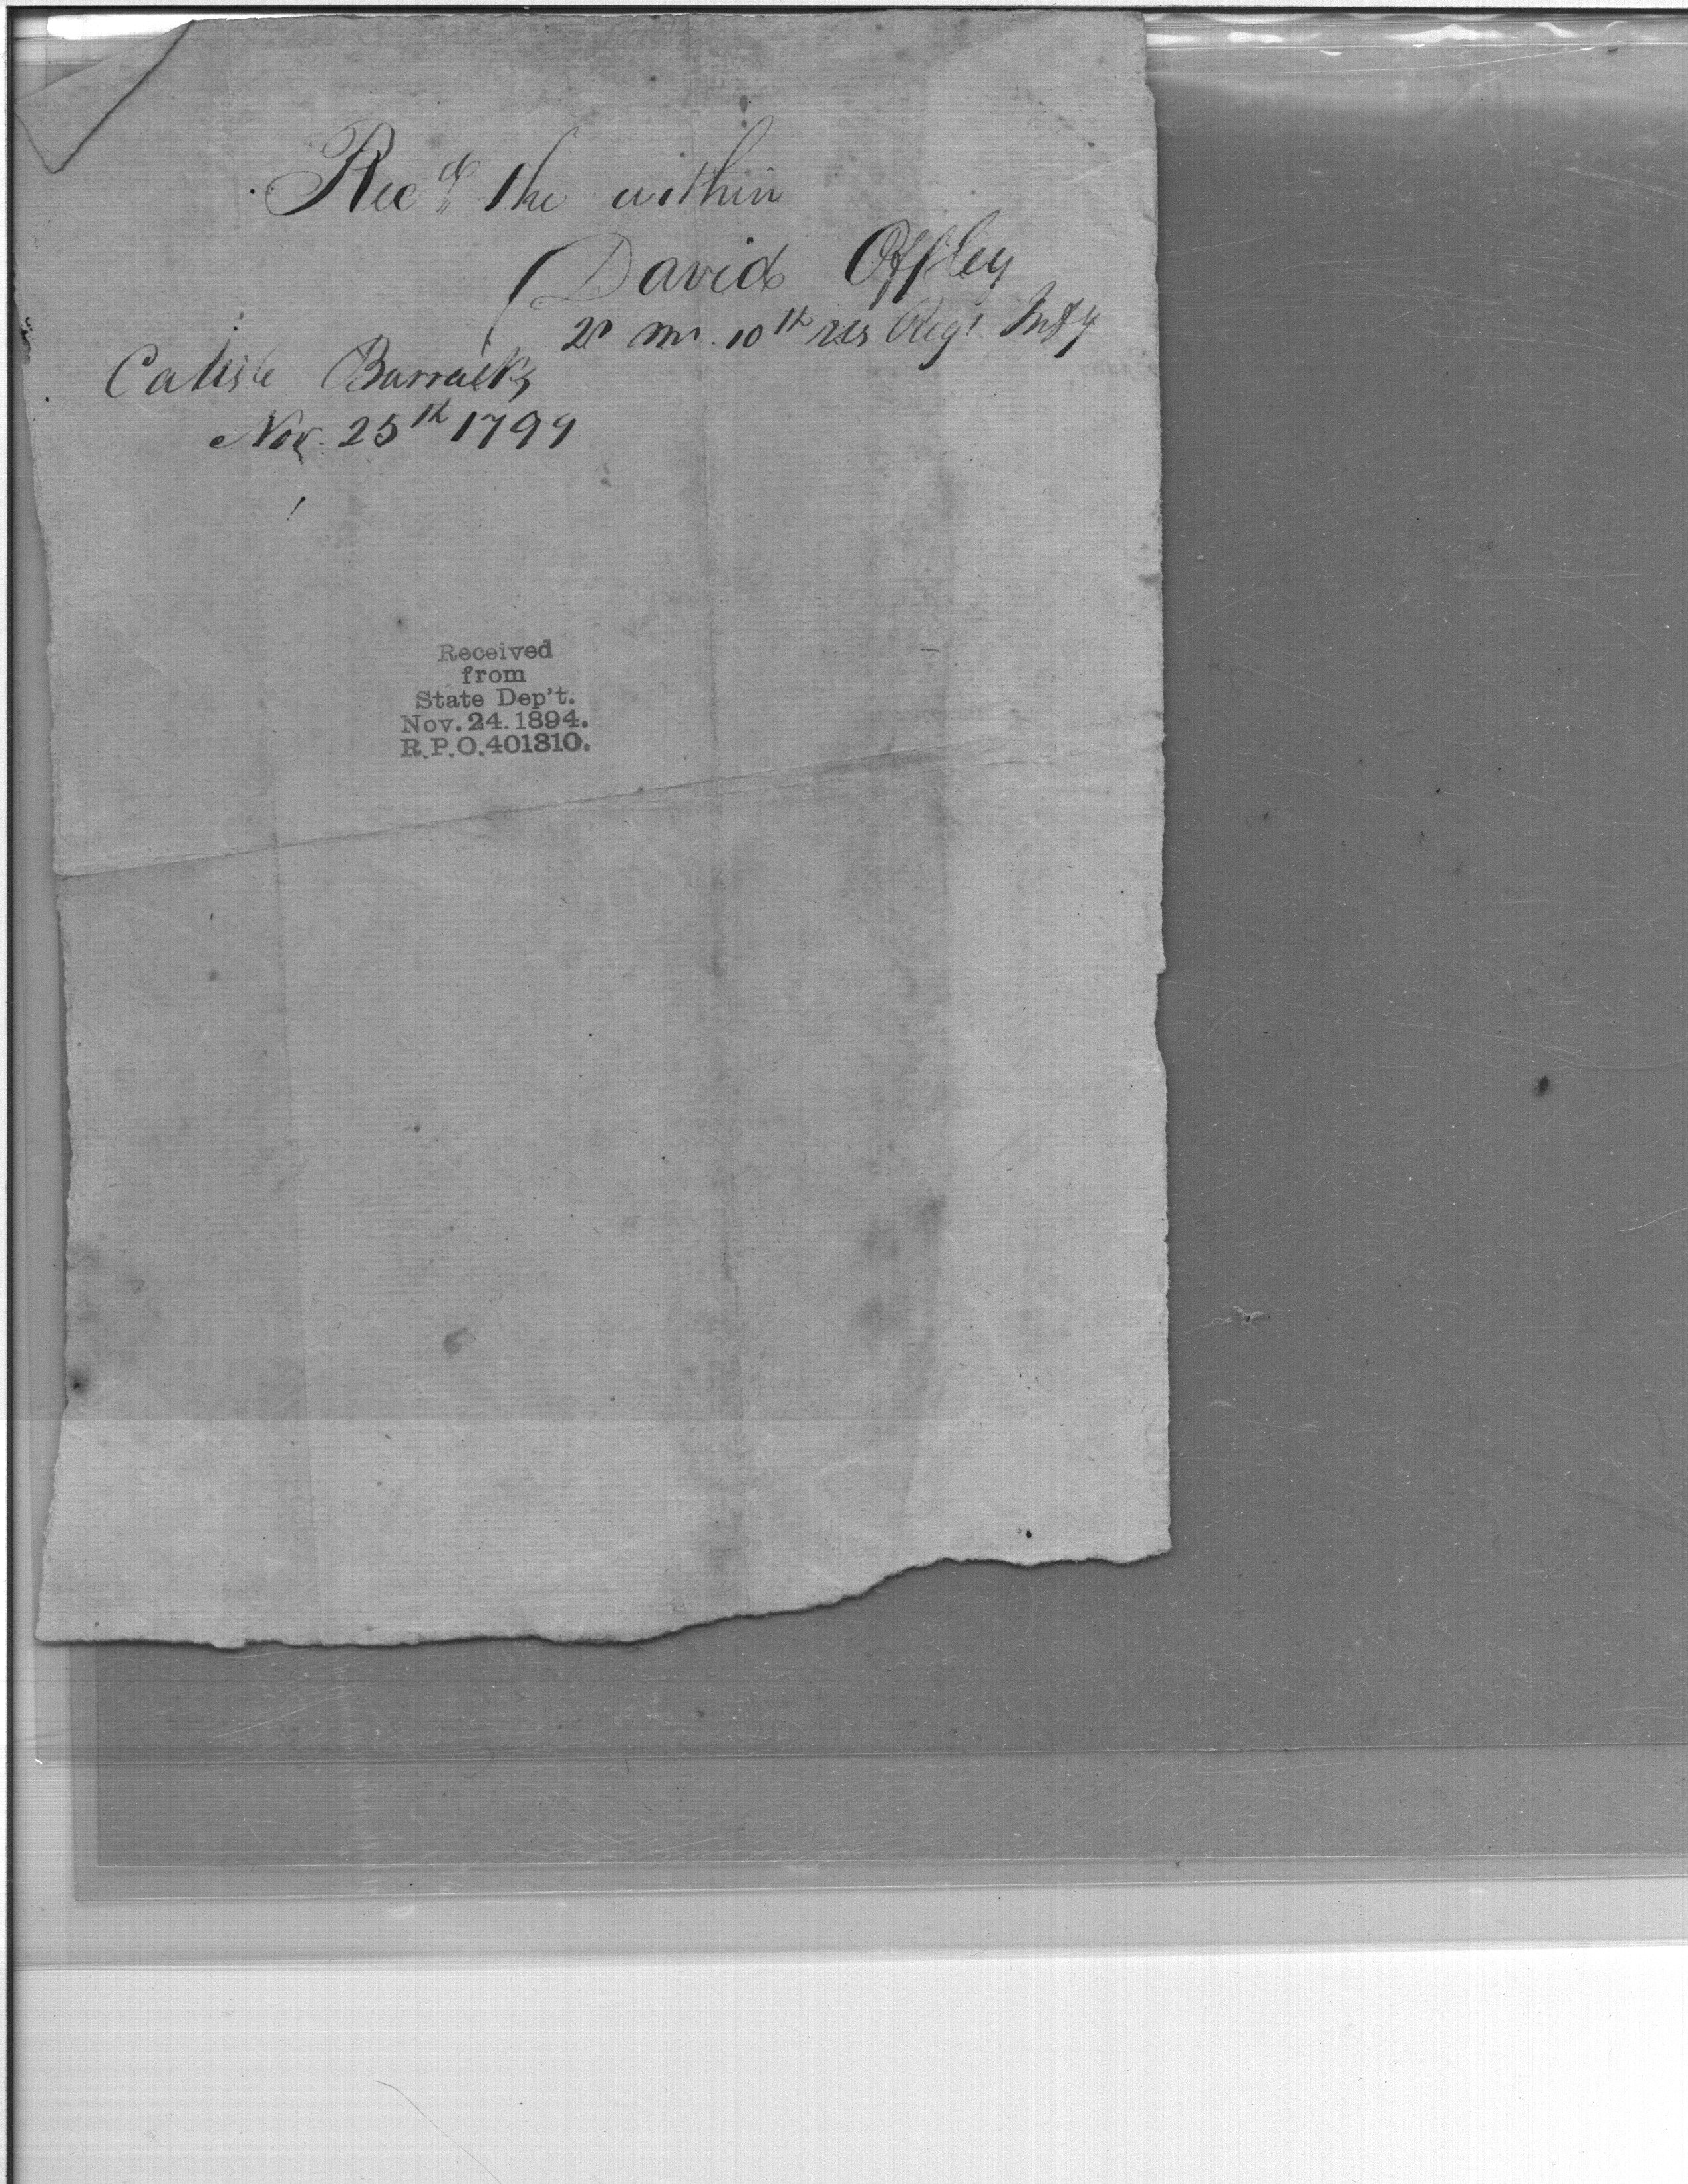 Rec.d the within
David Offley
Qr Mr. 10th US Regt Infy
Carlisle Barracks
Nov. 25th 1799
Received
from
State Dep't.
Nov. 24. 1894.
R.P.O. 401310.